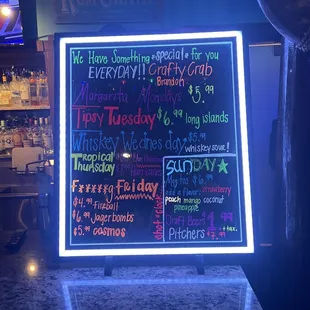 We Have Something special for you
EVERYDAY!! Crafty Crab
Brandon
Margarita Mondays $5.99
Tipsy Tuesday $6.99 long islands
Whiskey Wednesday $5.99
whiskey sour!
Tropical
Thursday
SUNDAY
add a flavor: strawberry
peach mango coconut
pineapple
F******g Friday
$4.99 fireball
$6.99 jagerbombs
$5.99 cosmos
Draft Beers
Pitchers $7.99
+tax.